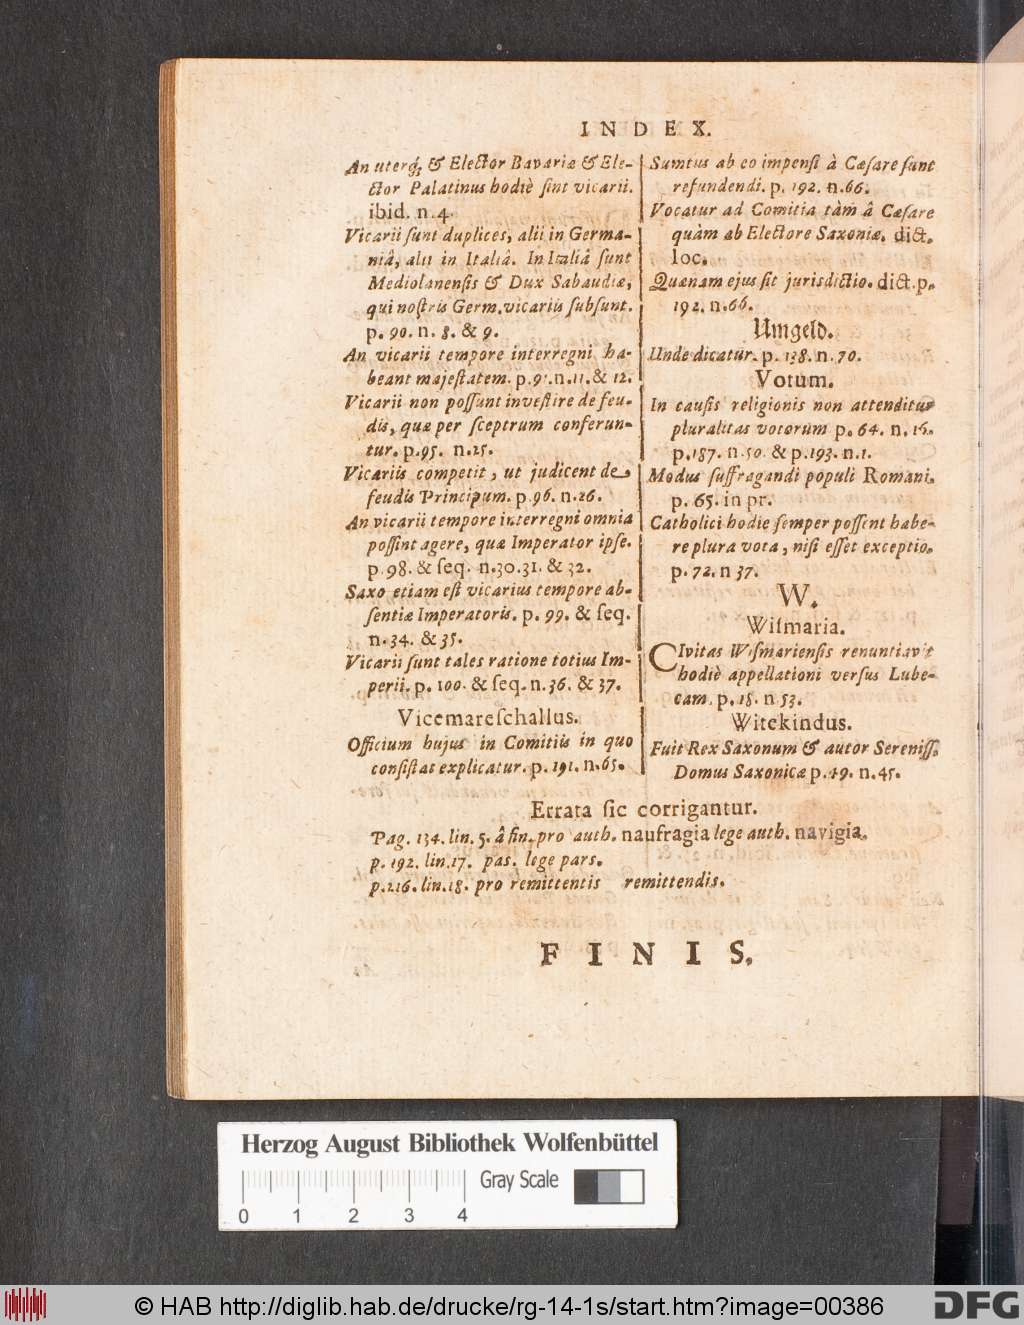 INDEX.
An uterq́; & Elector Bavariæ & Ele-
ctor Palatinus hodiè sint vicarii.
ibid. n. 4.
Vicarii sunt duplices, alii in Germa-
niâ, alii in Italiâ. In Italiâ sunt
Mediolanensis & Dux Sabaudiæ,
qui nostris Germ. vicariis subsunt.
p. 90. n. 8. & 9.
An vicarii tempore interregni ha-
beant majestatem. p. 91. n. 11. & 12.
Vicarii non possunt investire de feu-
dis, quæ per sceptrum conferun-
tur. p. 95. n. 25.
Vicariis competit, ut judicent de
feudis Principum. p. 96. n. 26.
An vicarii tempore interregni omnia
possint agere, quæ Imperator ipse.
p. 98. & seq. n. 30. 31. & 32.
Saxo etiam est vicarius tempore ab-
sentiæ Imperatoris. p. 99. & seq.
n. 34. & 35.
Vicarii sunt tales ratione totius Im-
perii. p. 100. & seq. n. 36. & 37.
Vicemareschallus.
Officium hujus in Comitiis in quo
consistat explicatur. p. 191. n. 65.
Sumtus ab eo impensi à Cæsare sunt
refundendi. p. 192. n. 66.
Vocatur ad Comitia tàm â Cæsare
quàm ab Electore Saxoniæ. dict.
loc.
Quænam ejus sit jurisdictio. dict. p.
192. n. 66.
Umgeld.
Unde dicatur. p. 138. n. 70.
Votum.
In causis religionis non attenditur
pluralitas votorum p. 64. n. 16.
p. 187. n. 50. & p. 193. n. 1.
Modus suffragandi populi Romani.
p. 65. in pr.
Catholici hodie semper possent habe-
re plura vota, nisi esset exceptio.
p. 72. n 37.
W.
Wismaria.
CIvitas Wismariensis renuntiavit
hodiè appellationi versus Lube-
cam. p. 18. n 53.
Witekindus.
Fuit Rex Saxonum & autor Sereniss.
Domus Saxonicæ p. 49. n. 45.
Errata sic corrigantur.
Pag. 134. lin. 5. â fin. pro auth. naufragia lege auth. navigia.
p. 192. lin. 17. pas. lege pars.
p. 216. lin. 18. pro remittentis remittendis.
FINIS.
Herzog August Bibliothek Wolfenbüttel
Gray Scale
0 1 2 3 4
© HAB http://diglib.hab.de/drucke/rg-14-1s/start.htm?image=00386
DFG